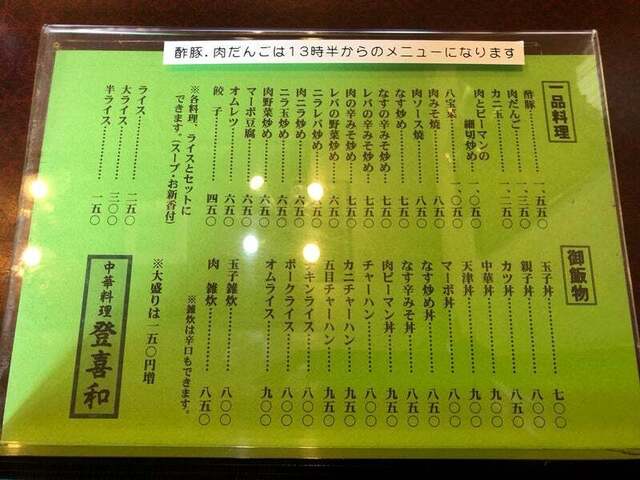 酢豚.肉だんごは13時半からのメニューになります
一品料理
酢豚 一、五五〇
肉だんご 一、三五〇
カニ玉 一、二五〇
肉とピーマンの
細切炒め 一、〇五〇
八宝菜 一、〇五〇
肉みそ焼 八五〇
肉ソース焼 八五〇
なす炒め 七五〇
なすの辛みそ炒め 七五〇
レバの辛みそ炒め 七五〇
肉の辛みそ炒め 七五〇
レバの野菜炒め 六五〇
ニラレバ炒め 六五〇
肉ニラ炒め 六五〇
ニラ玉炒め 六五〇
肉野菜炒め 六五〇
マーボ豆腐 六五〇
オムレツ 六五〇
餃子 四五〇
※各料理、ライスとセットに
できます。(スープ・お新香付)
ライス 二五〇
大ライス 三〇〇
半ライス 一五〇
御飯物
玉子丼 七〇〇
親子丼 八〇〇
カツ丼 八五〇
中華丼 九〇〇
天津丼 九〇〇
マーボ丼 八〇〇
なす炒め丼 八五〇
なす辛みそ丼 八五〇
肉ピーマン丼 九五〇
チャーハン 八〇〇
カニチャーハン 九五〇
五目チャーハン 九五〇
チキンライス 八〇〇
ポークライス 八〇〇
オムライス 九〇〇
玉子雑炊 八〇〇
肉 雑炊 八五〇
※雑炊は辛口もできます。
※大盛りは一五〇円増
中華料理 登喜和